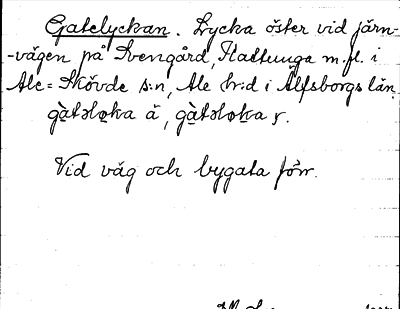 Gatelyckan. Lycka öster vid järn-
-vägen på Svengård, Hattunga m.fl. i
Ale=Skövde s:n, Ale h:d i Älfsborgs län.
gàtəlọka å, gàtəlọka r.
Vid väg och bygata förr.